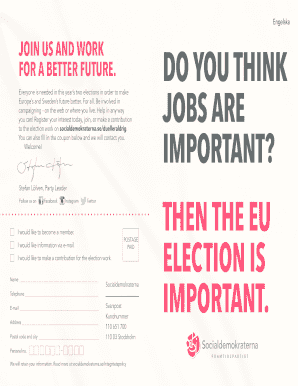 Engelska
JOIN US AND WORK
FOR A BETTER FUTURE.
Everyone is needed in this year's two elections in order to make
Europe's and Sweden's future better. For all. Be involved in
campaigning - on the web or where you live. Help in any way
you can! Register your interest today, join us, or make a contribution
to the election work on socialdemokraterna.se/duelleralldrig.
You can also fill in the coupon below and we will contact you.
Welcome!
Stefan Löfven, Party Leader
Follow us on Facebook Instagram Twitter
I would like to become a member.
I would like information via e-mail
I would like to make a contribution for the election work.
POSTAGE
PAID
Name
Telephone
E-mail
Address
Postal code and city
Personal no.
Socialdemokraterna
Svarspost
Kundnummer
110 651 700
110 03 Stockholm
We will store your information. Read more at socialdemokraterna.se/integritetspolicy
DO YOU THINK
JOBS ARE
IMPORTANT?
THEN THE EU
ELECTION IS
IMPORTANT.
Socialdemokraterna
FRAMTIDSPARTIET